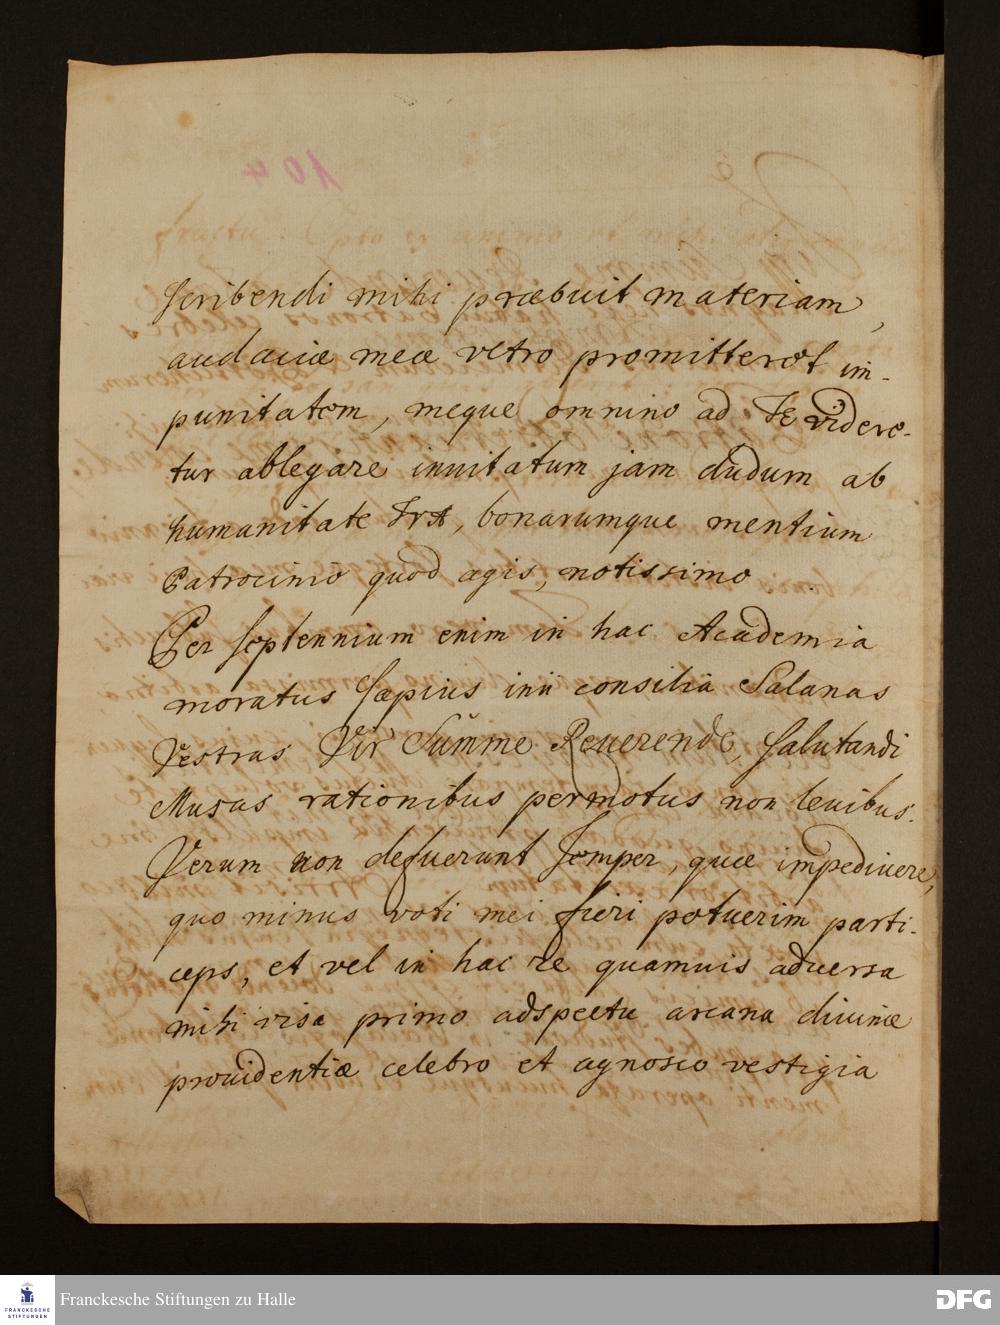 scribendi mihi præbuit materiam,
audaciæ meæ vero promitteret im-
punitatem, meque omnino ad Te videre-
tur ablegare inuitatum jam dudum ab
humanitate Tua, bonarumque mentium
Patrocinio quod agis, notissimo
Per septennium enim in hac Academia
moratus sæpius inii consilia Salanas
Vestras Vir Summe Reuerende, salutandi
Musas rationibus permotus non leuibus.
Verum non defuerunt semper, quæ impediuere,
quo minus voti mei fieri potuerim parti-
ceps, et vel in hac re quamuis aduersa
mihi visa primo adspectu arcana diuinæ
prouidentiæ celebro et agnosco vestigia
Franckesche Stiftungen zu Halle
FRANCKESCHE
STIFTUNGEN
DFG